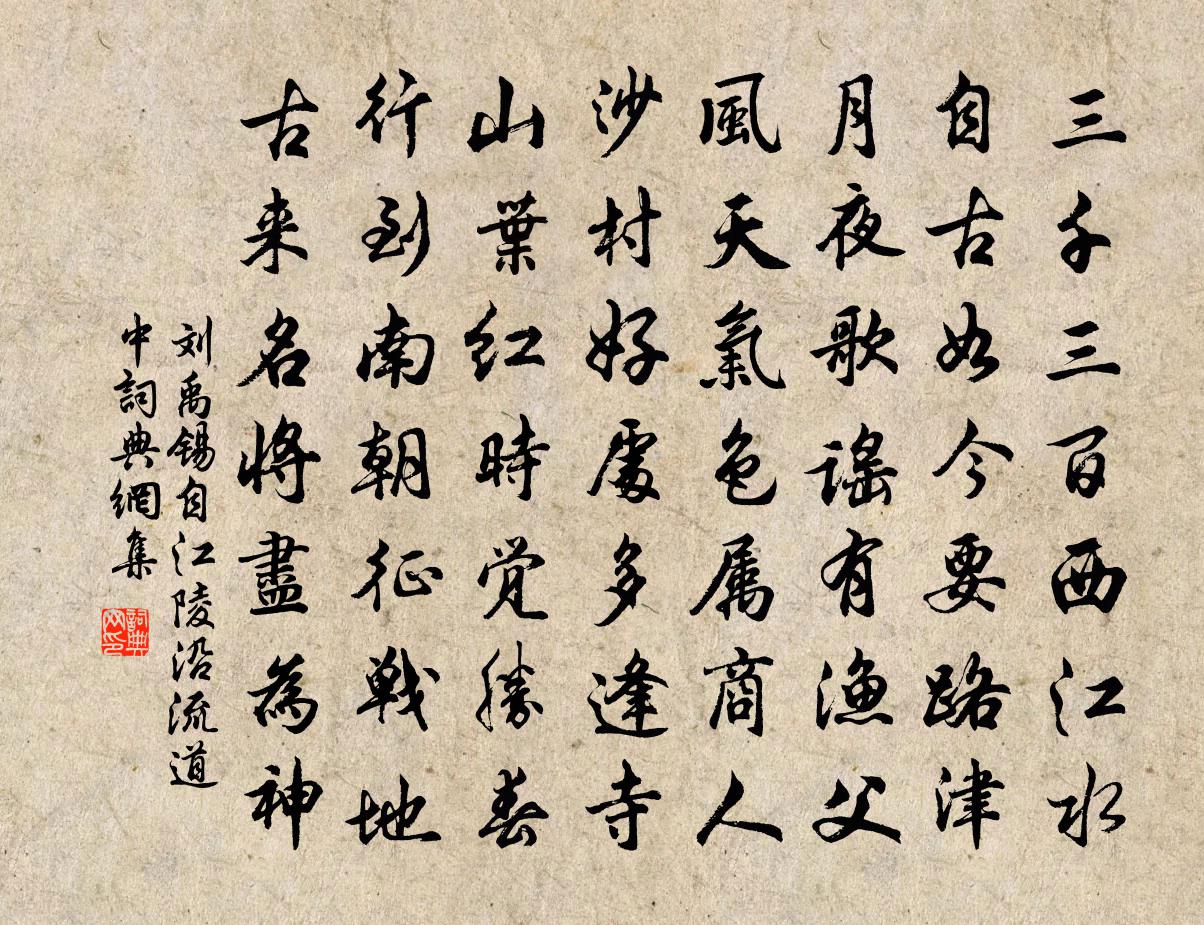 三千三百西江水
自古如今要路津
月夜歌謠有漁父
風天氣色属商人
沙村好處多逢寺
山葉红時觉勝春
行到南朝征戰地
古来名將盡為神
刘禹锡自江陵沿流道
中詞典網集
詞典
网印